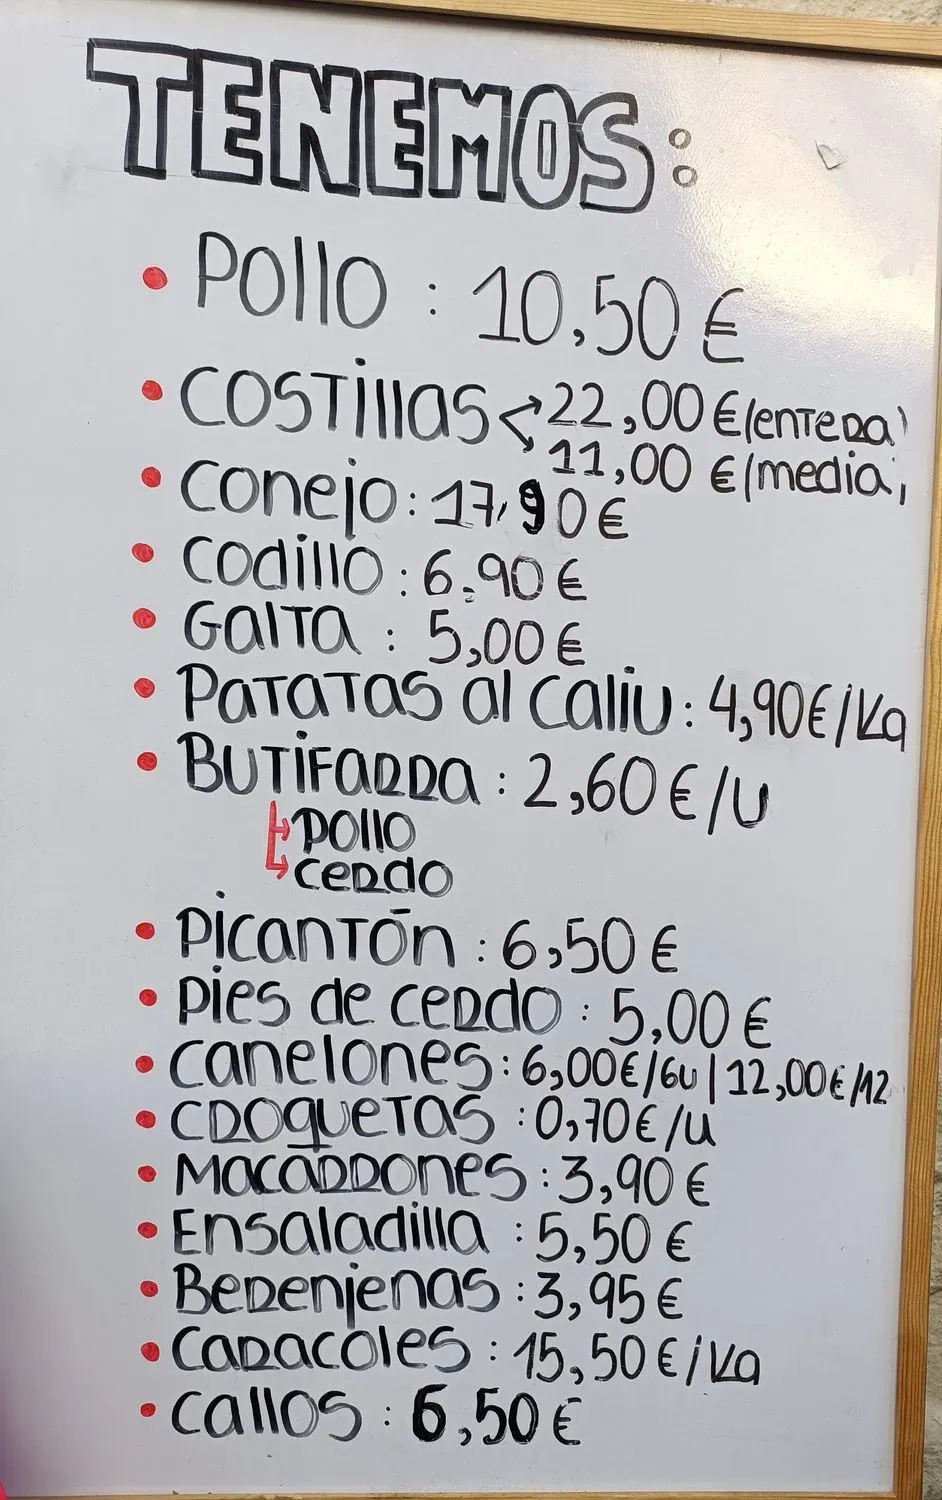 TENEMOS:
• Pollo : 10,50 €
• COSTillas 22,00 €/enTera
11,00 €/media
• Conejo: 17,90 €
• Codillo : 6,90 €
• GalTa : 5,00 €
• PaTaTas al Caliu : 4,90€/Kg
• BUTiFarra : 2,60 €/U
Pollo
cerdo
• PicanTón : 6,50 €
• Pies de cerdo : 5,00 €
• Canelones : 6,00€/6u | 12,00€/12
• CroqueTas : 0,70€/u
• Macarrones : 3,90 €
• Ensaladilla : 5,50 €
• Berenjenas : 3,95 €
• Caracoles : 15,50 €/Kg
• Callos : 6,50 €